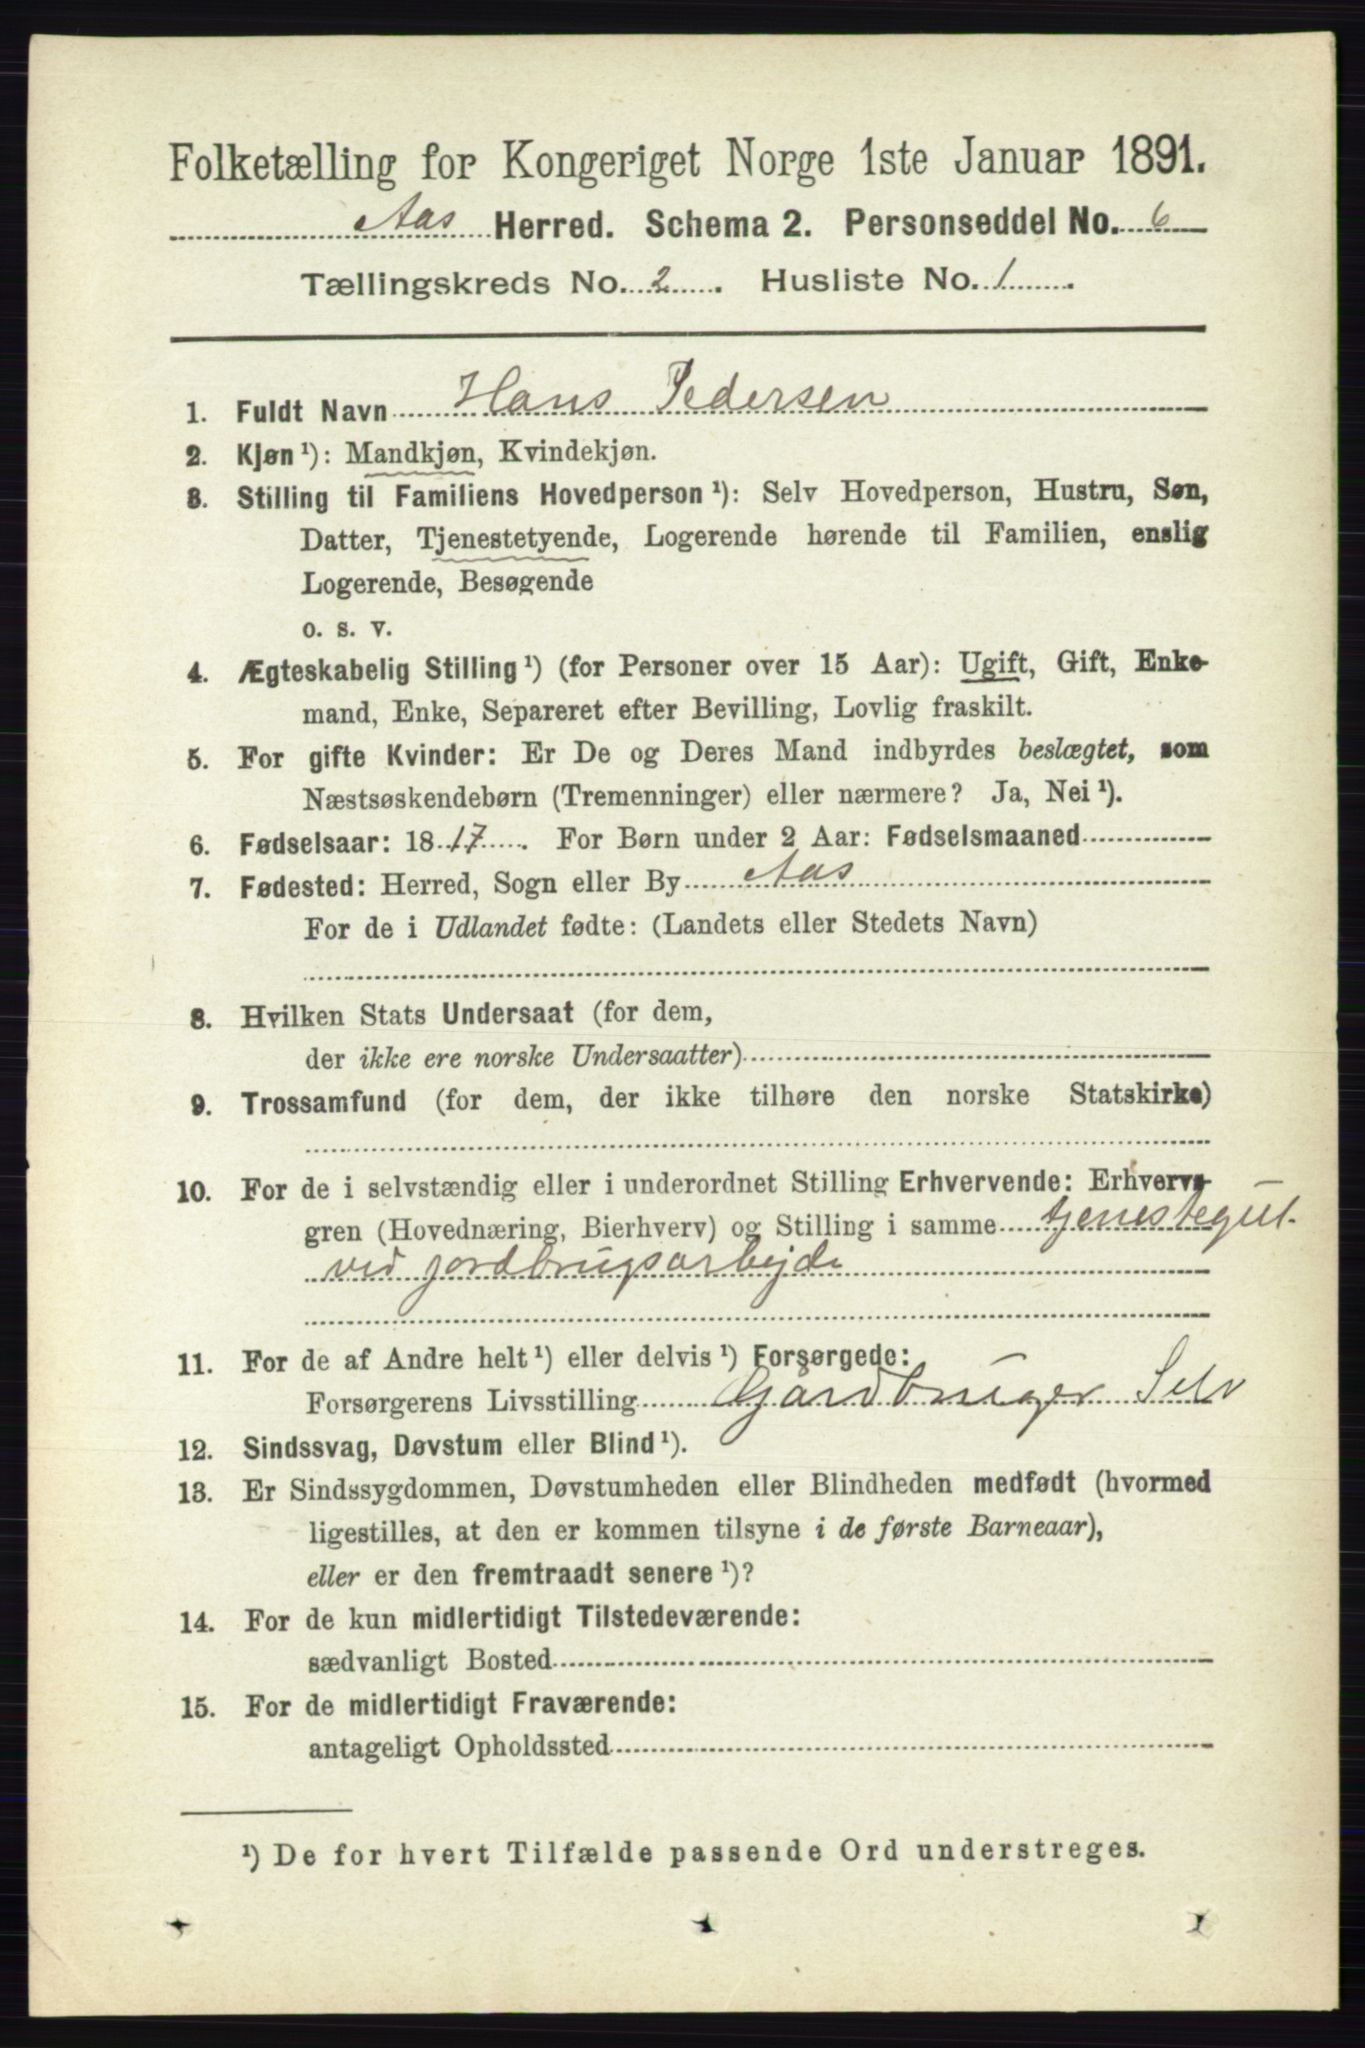 Folketælling for Kongeriget Norge 1ste Januar 1891.
Aas Herred. Schema 2. Personseddel No. 6
Tællingskreds No. 2. Husliste No. 1.
1. Fuldt Navn Hans Pedersen
2. Kjøn ¹): Mandkjøn, Kvindekjøn.
3. Stilling til Familiens Hovedperson ¹): Selv Hovedperson, Hustru, Søn,
Datter, Tjenestetyende, Logerende hørende til Familien, enslig
Logerende, Besøgende
o. s. v.
4. Ægteskabelig Stilling ¹) (for Personer over 15 Aar): Ugift, Gift, Enke-
mand, Enke, Separeret efter Bevilling, Lovlig fraskilt.
5. For gifte Kvinder: Er De og Deres Mand indbyrdes beslægtet, som
Næstsøskendebørn (Tremenninger) eller nærmere? Ja, Nei ¹).
6. Fødselsaar: 1817. For Børn under 2 Aar: Fødselsmaaned
7. Fødested: Herred, Sogn eller By Aas
For de i Udlandet fødte: (Landets eller Stedets Navn)
8. Hvilken Stats Undersaat (for dem,
der ikke ere norske Undersaatter)
9. Trossamfund (for dem, der ikke tilhøre den norske Statskirke)
10. For de i selvstændig eller i underordnet Stilling Erhvervende: Erhvervs-
gren (Hovednæring, Bierhverv) og Stilling i samme tjenestegut.
ved jordbrugsarbejde
11. For de af Andre helt ¹) eller delvis ¹) Forsørgede:
Forsørgerens Livsstilling Gårdbruger Selv
12. Sindssvag, Døvstum eller Blind ¹).
13. Er Sindssygdommen, Døvstumheden eller Blindheden medfødt (hvormed
ligestilles, at den er kommen tilsyne i de første Barneaar),
eller er den fremtraadt senere ¹)?
14. For de kun midlertidigt Tilstedeværende:
sædvanligt Bosted
15. For de midlertidigt Fraværende:
antageligt Opholdssted
¹) De for hvert Tilfælde passende Ord understreges.